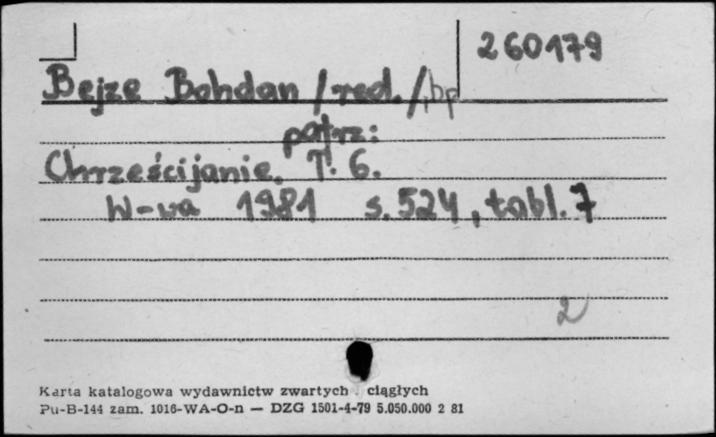 260179
Bejze Bohdan /red./, bp
patrz:
Chrześcijanie. T. 6.
W-wa 1981 s. 524, tabl. 7
2
Karta katalogowa wydawnictw zwartych i ciągłych
Pu-B-144 zam. 1016-WA-O-n — DZG 1501-4-79 5.050.000 2 81